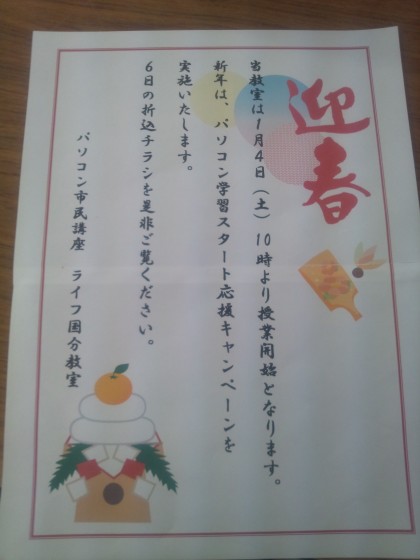 迎春
当教室は1月4日（土）10時より授業開始となります。
新年は、パソコン学習スタート応援キャンペーンを
実施いたします。
6日の折込チラシを是非ご覧ください。
パソコン市民講座　ライフ国分教室